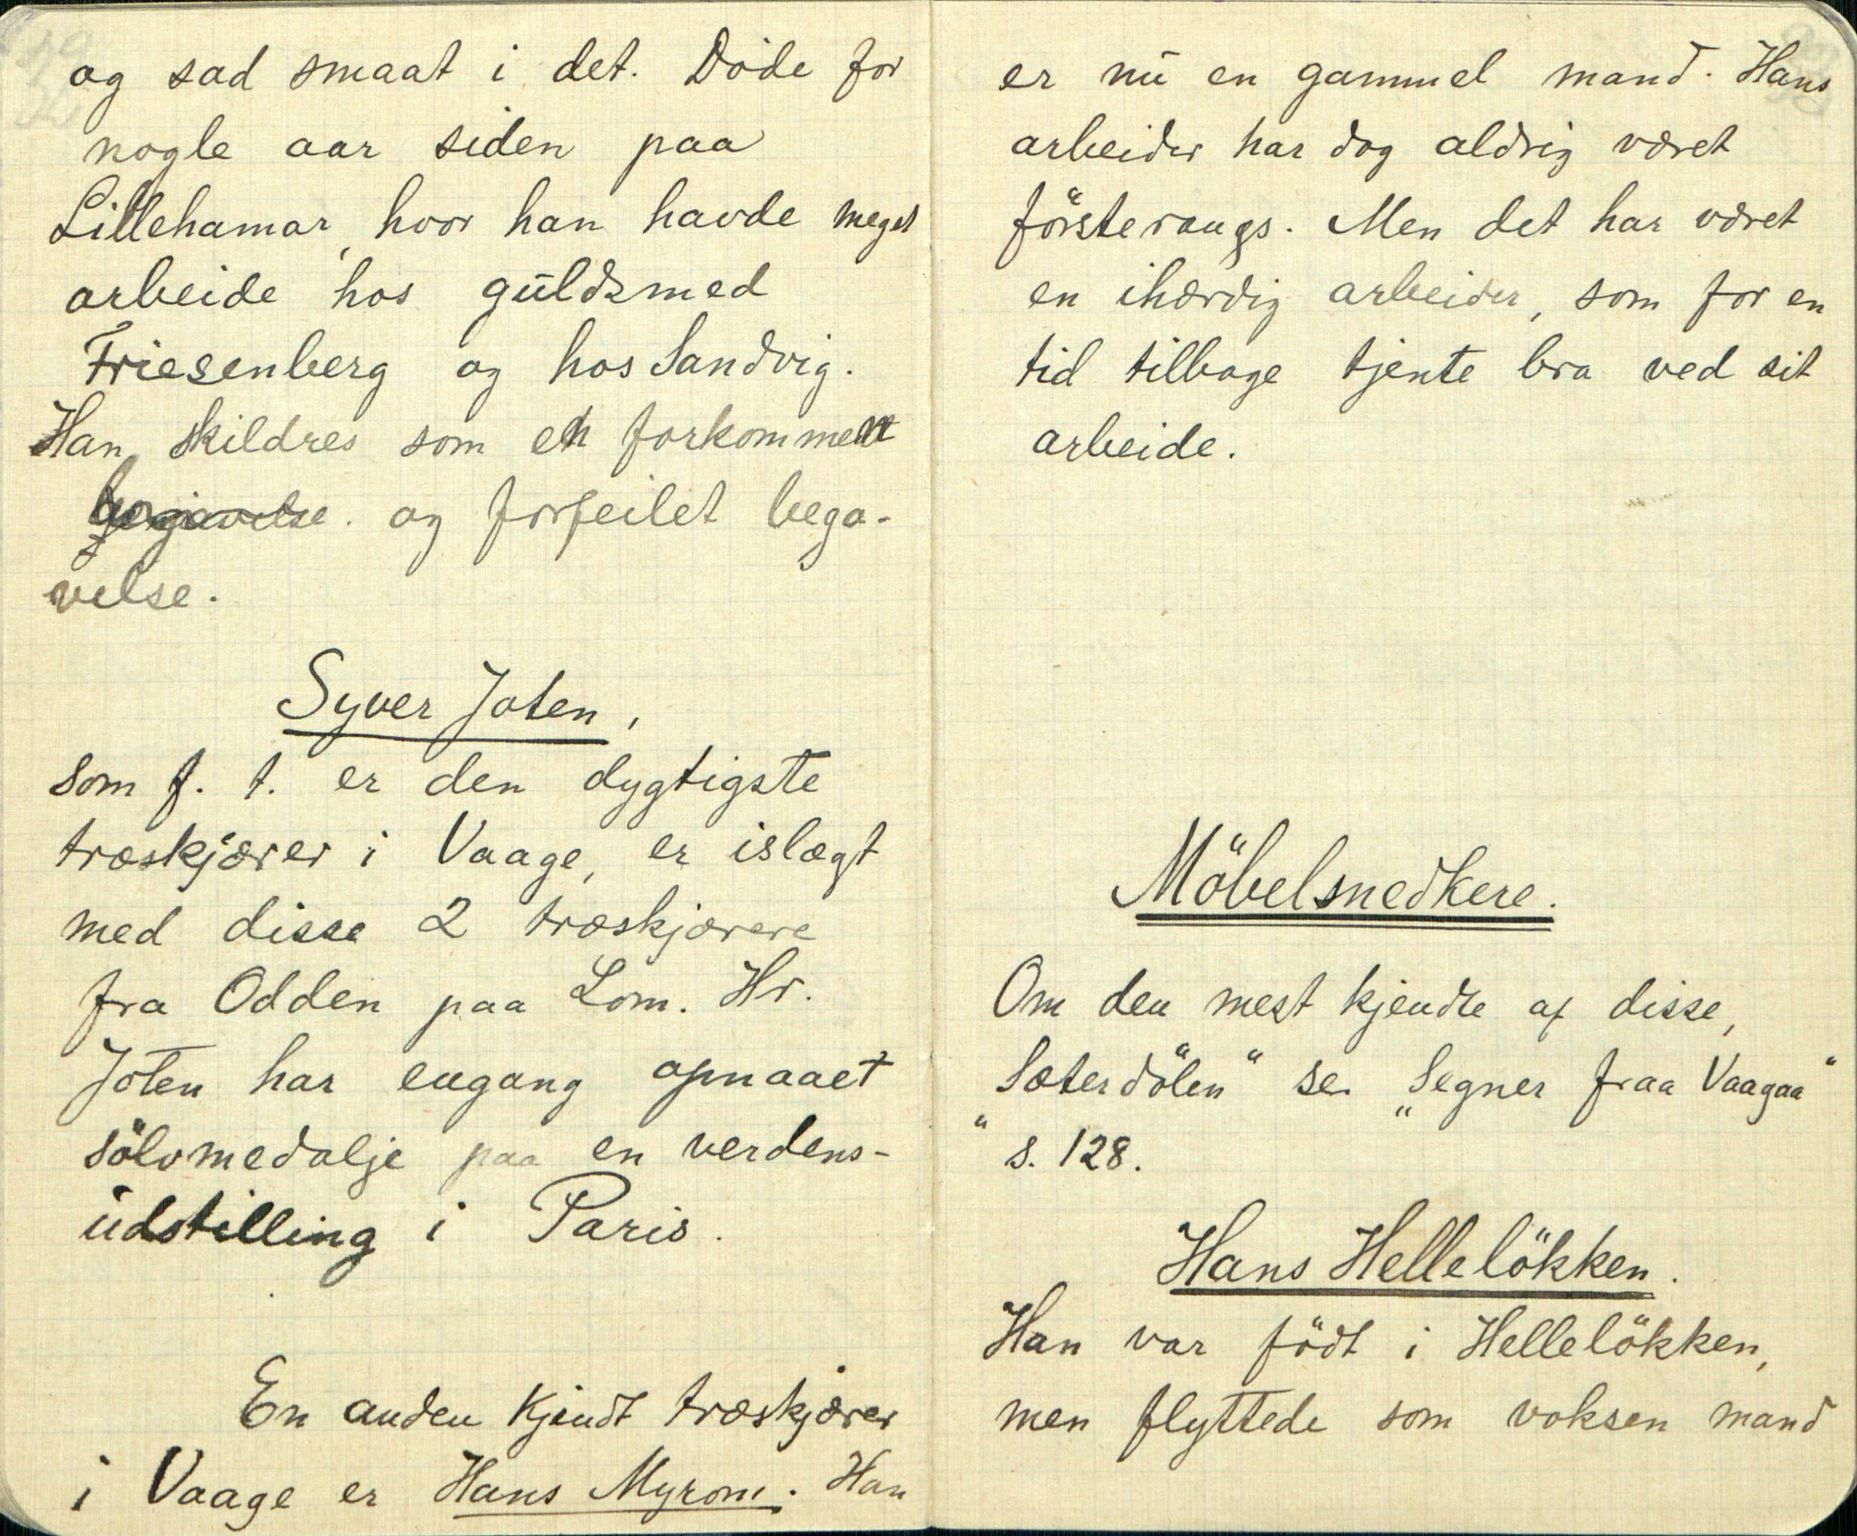 og sad smaat i det. Döde for
nogle aar siden paa
Lillehamar, hvor han havde meget
arbeide hos guldsmed
Friesenberg og hos Sandvig.
Han skildres som en forkommen
og forfeilet bega-
velse.
Syver Joten,
som f. t. er den dygtigste
træskjærer i Vaage, er islægt
med disse 2 træskjærere
fra Odden paa Lom. Hr.
Joten har engang opnaaet
sölvmedalje paa en verdens-
udstilling i Paris.
En anden kjendt træskjærer
i Vaage er Hans Myrom. Han
er nu en gammel mand. Hans
arbeider har dog aldrig været
försterangs. Men det har været
en ihærdig arbeider, som for en
tid tilbage tjente bra ved sit
arbeide.
Möbelsnedkere.
Om den mest kjendte af disse,
"Sæterdölen" se "Segner fraa Vaagaa"
s. 128.
Hans Hellelökken.
Han var födt i Hellelökken,
men flyttede som voksen mand